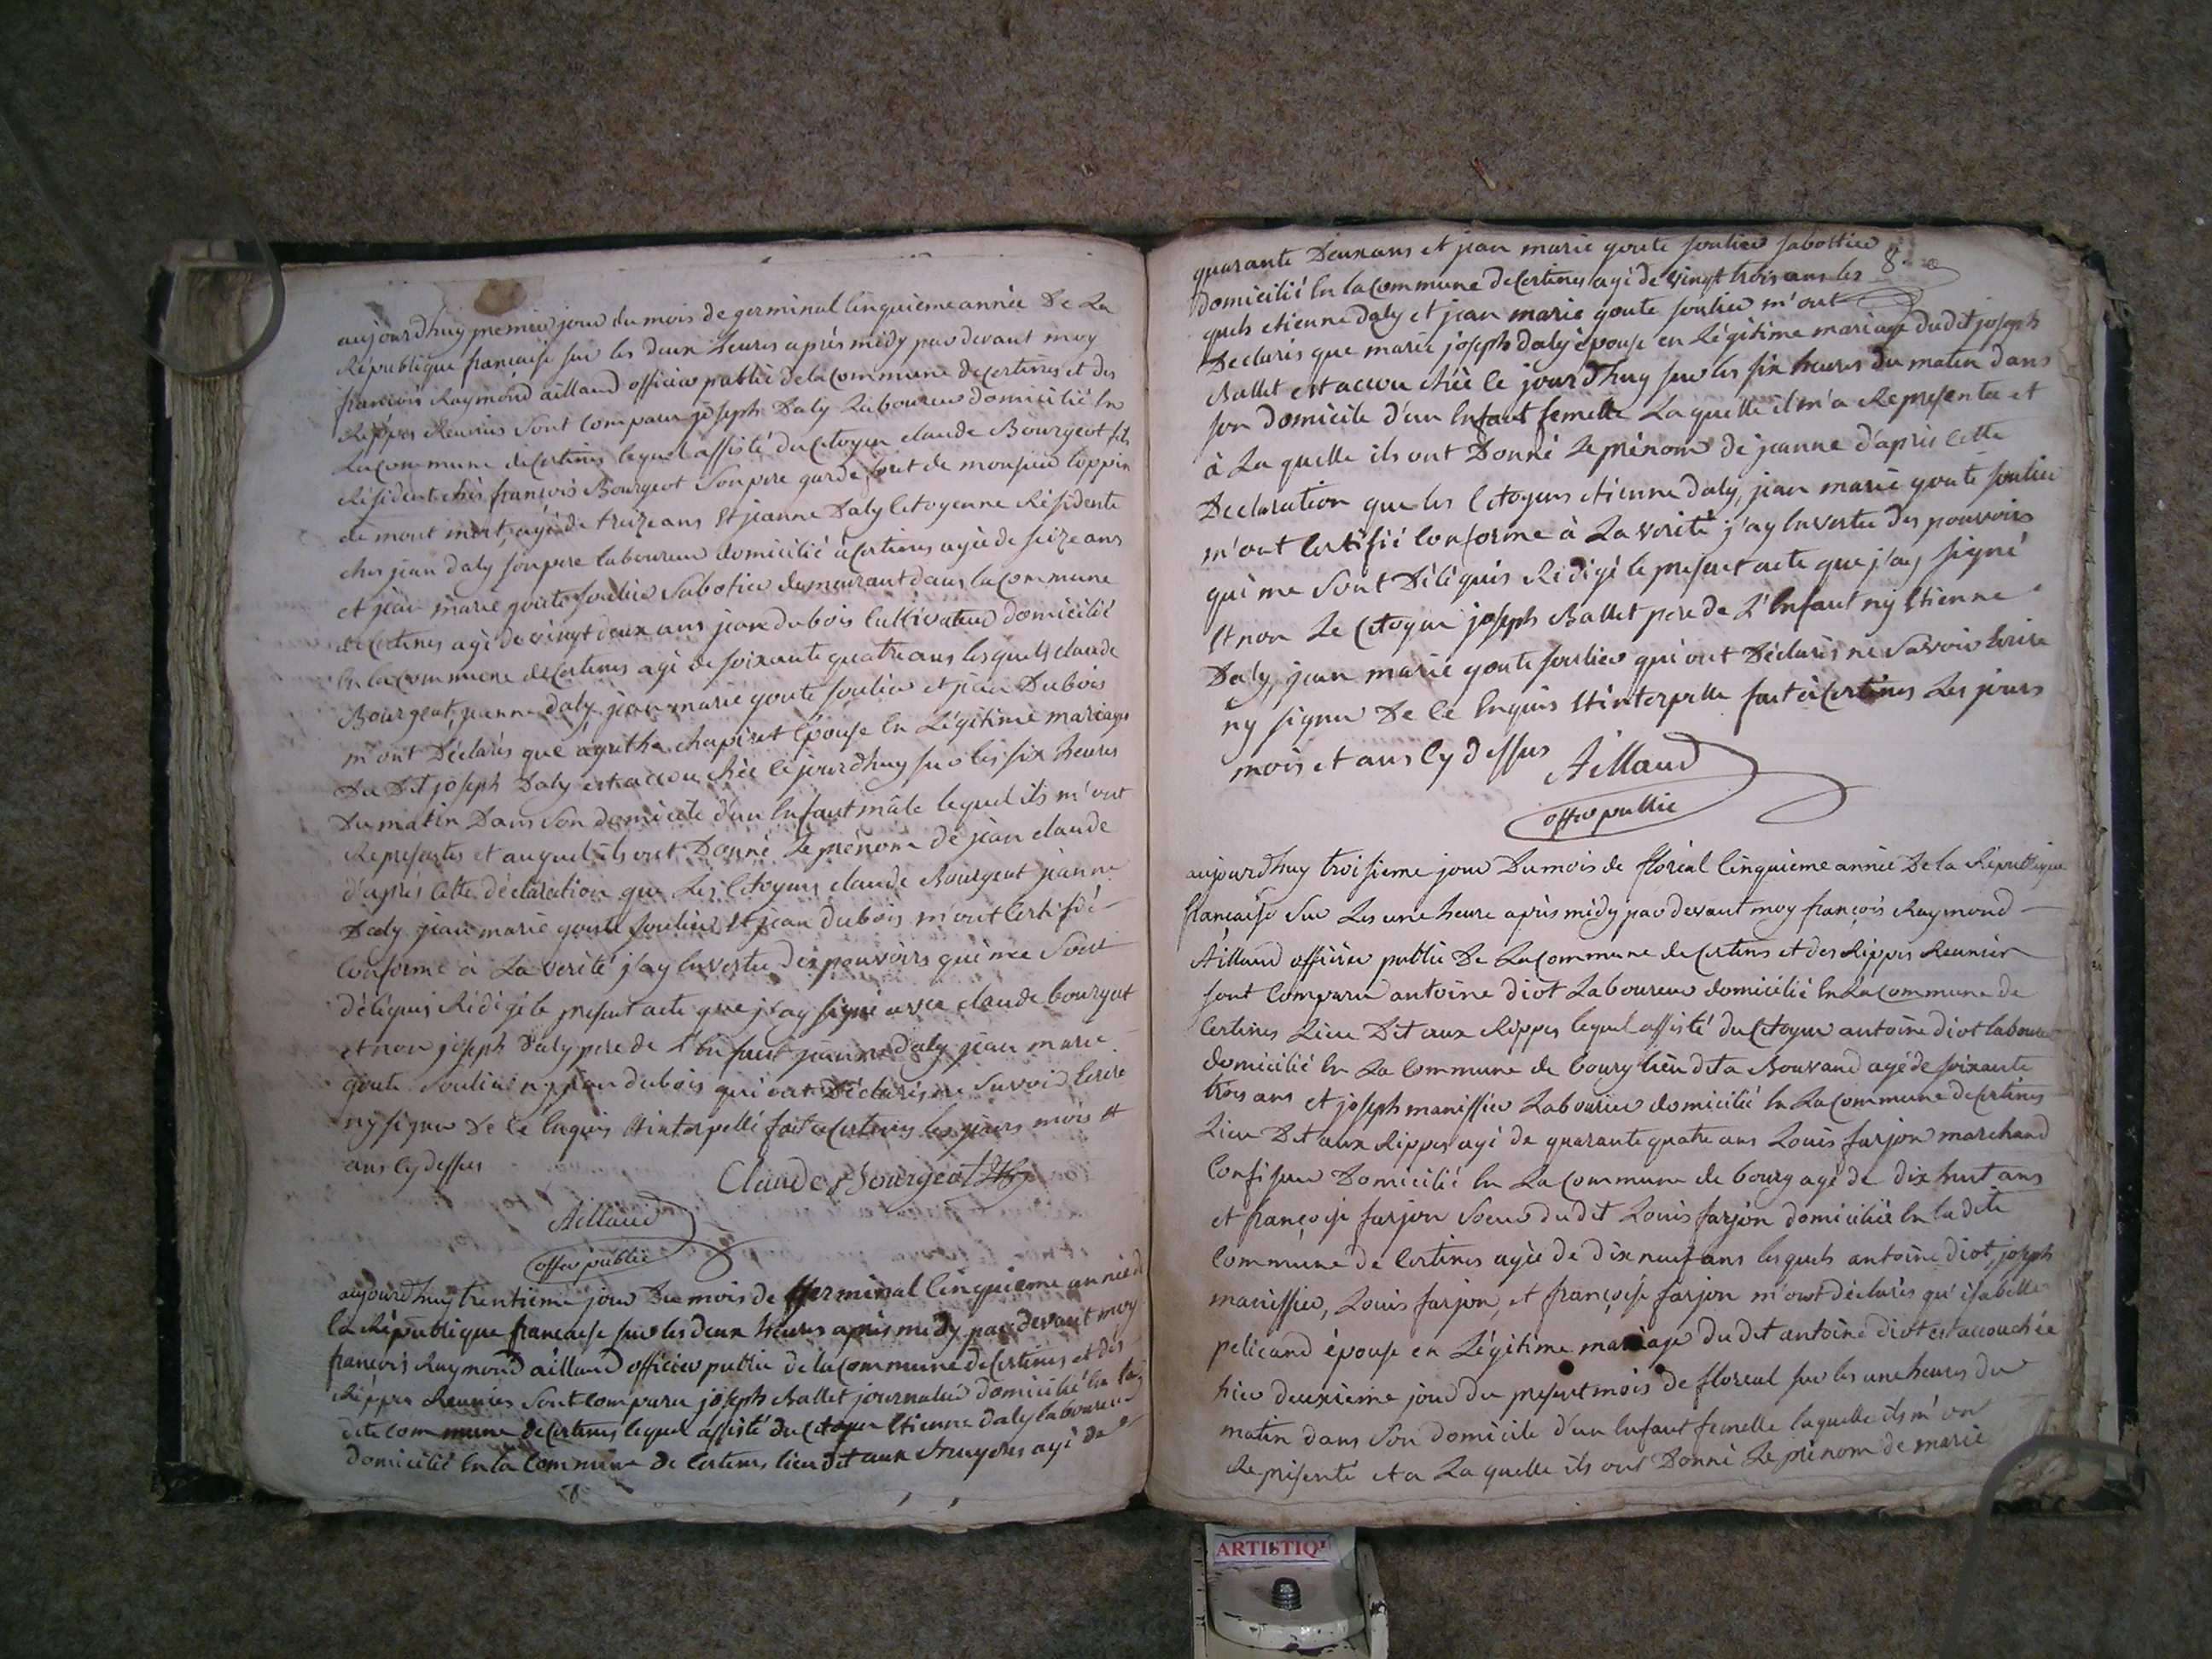 aujourdhuy premier jour du mois de germinal cinquieme année De La
République française sur les deux heures après midy par devant moy
francois Raymond aillaud officier public de la commune de certines et des
Rippes Reunies sont comparu joseph Daly Laboureur domicilié En
La commune de certines lequel assisté du citoyen claude Bourgeot fils
Résident chés françois Bourgeot son pere garde foret de monsieur loppin
de mont mort, agé de treize ans Et jeanne Daly citoyenne Résidente
chés jean daly son pere laboureur domicilié à certines agée de seize ans
et jean marie goute soulier Sabotier demeurant dans la commune
de certines agé de vingt deux ans jean dubois cultivateur domicilié
En la commune de certines agé de soixante quatre ans lesquels claude
Bourgeot, jeanne daly, jean marie goute soulier et jean Dubois
m'ont Déclarés que agathe chapiret Epouse En Légitime mariage
Du Dit joseph Daly est accouchée le jourdhuy sur les six heures
Du matin Dans Son domicile d'un Enfant mâle lequel ils m'ont
Representés et auquel ils ont Donné Le prénom de jean claude
d'après Cette déclaration que Les Citoyens claude Bourgeot jeanne
Daly jean marie goute soulier Et jean dubois m'ont Certifié
conforme à La verité j'ay En vertu des pouvoirs qui me Sont
délégués Rédigé le présent acte que j'ay signé avec claude bourgeot
et non joseph Daly pere de L'Enfant jeanne daly jean marie
goute Soulier ny jean dubois qui ont Déclarés ne Savoir Ecrire
ny signer De Ce Enquis Et interpellé fait à Certines les jours mois Et
ans Cy dessus
Claude Bourgeot fils
Aillaud
offier public
aujourdhuy trentieme jour Du mois de Germinal Cinquieme année de
la République francaise sur les deux heures après midy par devant moy
francois Raymond aillaud officier public de la commune de Certines et des
Rippes Reunies Sont comparu joseph Ballet journalié domicilié En la
dite commune de Certines lequel assisté du Citoyen Etienne daly laboureur
domicilié En la Commune de Certines lieu dit aux Bruyeres agé de
8
quarante Deux ans et jean marie goute soulier sabottier
domicilié En la commune de Certines agé de vingt trois ans les
quels etienne daly et jean marie goute soulier m'ont
Declarés que marie joseph daly épouse en Légitime mariage dudit joseph
Ballet est accouchée le jourdhuy sur les six heures du matin dans
son domicile d'un Enfant femelle Laquelle il m'a Representée et
à La quelle ils ont Donné Le prénom de jeanne d'après Cette
Declaration que les Citoyens etienne daly, jean marie goute soulier
m'ont Certifié Conforme à La verité j'ay En vertu des pouvoirs
qui me Sont Délégués Rédigé le present acte que j'ay signé
Et non Le Citoyen joseph Ballet pere de L'Enfant ny Etienne
Daly, jean marie goute soulier qui ont Déclarés ne Savoir Ecrire
ny signer De Ce Enquis Et interpelle fait à Certines Les jours
mois et ans Cy dessus
Aillaud
offier public
aujourdhuy troisieme jour Du mois de floréal Cinquieme année De la République
française Sur Les une heure après midy par devant moy françois Raymond
Aillaud officier public De La commune de Certines et des Rippes Reunies
sont Comparu antoine diot Laboureur domicilié En La Commune de
Certines Lieu Dit aux Rippes lequel assisté du Citoyen antoine diot laboureur
domicilié En La Commune de bourg lieu dit a Bouvand agé de soixante
trois ans et joseph manissier Laboureur domicilié En La Commune de Certines
Lieu Dit aux Rippes agé de quarante quatre ans Louis farjon marchand
Confiseur Domicilié En La commune de bourg agé de dix huit ans
et françoise farjon Soeur du dit Louis farjon domiciliée En la dite
Commune de Certines agée de dix neuf ans lesquels antoine diot, joseph
manissier, Louis farjon, et françoise farjon m'ont déclarés qu'isabelle
pelicand épouse en Légitime mariage du dit antoine diot est accouchée
hier deuxieme jour du present mois de floreal sur les une heures du
matin dans Son domicile d'un Enfant femelle laquelle ils m'on
Representé et a La quelle ils ont Donné Le prénom de marie
ARTISTIQ